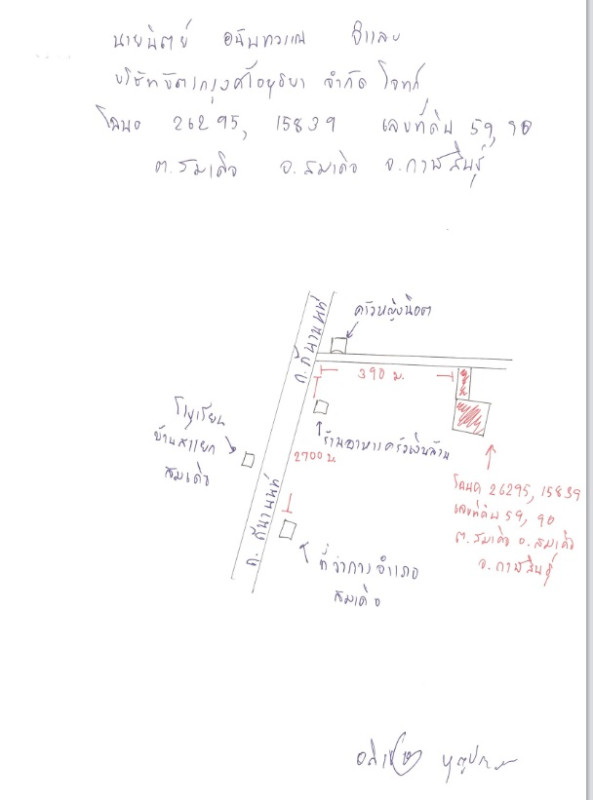 นายนิตย์ อนันทวรรณ จำเลย
บริษัทบัตรกรุงศรีอยุธยา จำกัด โจทก์
โฉนด 26295, 15839 เลขที่ดิน 59, 90
ต.สมเด็จ อ.สมเด็จ จ.กาฬสินธุ์
ครัวหญิงน็อต
ถ.ถีนานนท์
390 ม.
โรงเรียน
บ้านสี่แยก
สมเด็จ
ร้านอาหารครัวเงินล้าน
2700 ม.
โฉนด 26295, 15839
เลขที่ดิน 59, 90
ต.สมเด็จ อ.สมเด็จ
จ.กาฬสินธุ์
ถ.ถีนานนท์
ที่ว่าการอำเภอ
สมเด็จ